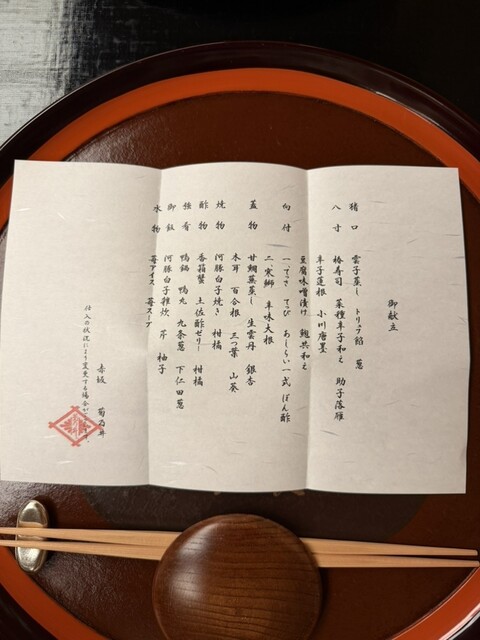 御献立
猪口 雲子蒸し トリュフ餡 葱
八寸 椿寿司 菜種辛子和え 助子落雁
辛子蓮根 小川唐墨
豆腐味噌漬け 鮑共和え
向付 一、てっさ てっぴ あしらい一式 ぽん酢
二、寒鰤 辛味大根
蓋物 甘鯛蕪蒸し 生雲丹 銀杏
木耳 百合根 三つ葉 山葵
焼物 河豚白子焼き 柑橘
酢物 香箱蟹 土佐酢ゼリー 柑橘
強肴 鴨鍋 鴨丸 九条葱 下仁田葱
御飯 河豚白子雑炊 芹 柚子
水物 苺アイス 苺スープ
赤坂 菊乃井
仕入の状況により変更する場合が